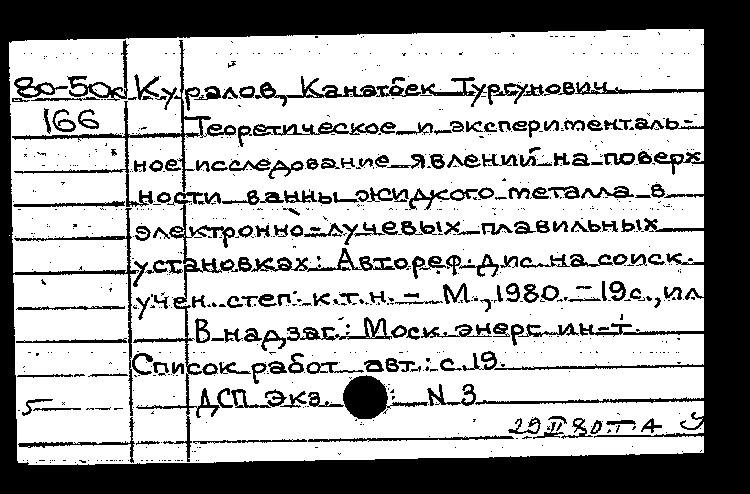 80-50к Куралов, Канатбек Тургунович.
166 Теоретическое и эксперименталь-
ное исследование явлений на поверх
ности ванны жидкого металла в
электронно-лучевых плавильных
установках: Автореф. дис. на соиск.
учен. степ. к.т.н. – М., 1980. – 19с., ил
В надзаг.: Моск. энерг. ин-т.
Список работ авт.: с. 19.
5 ДСП Экз. : N 3
29 II 80